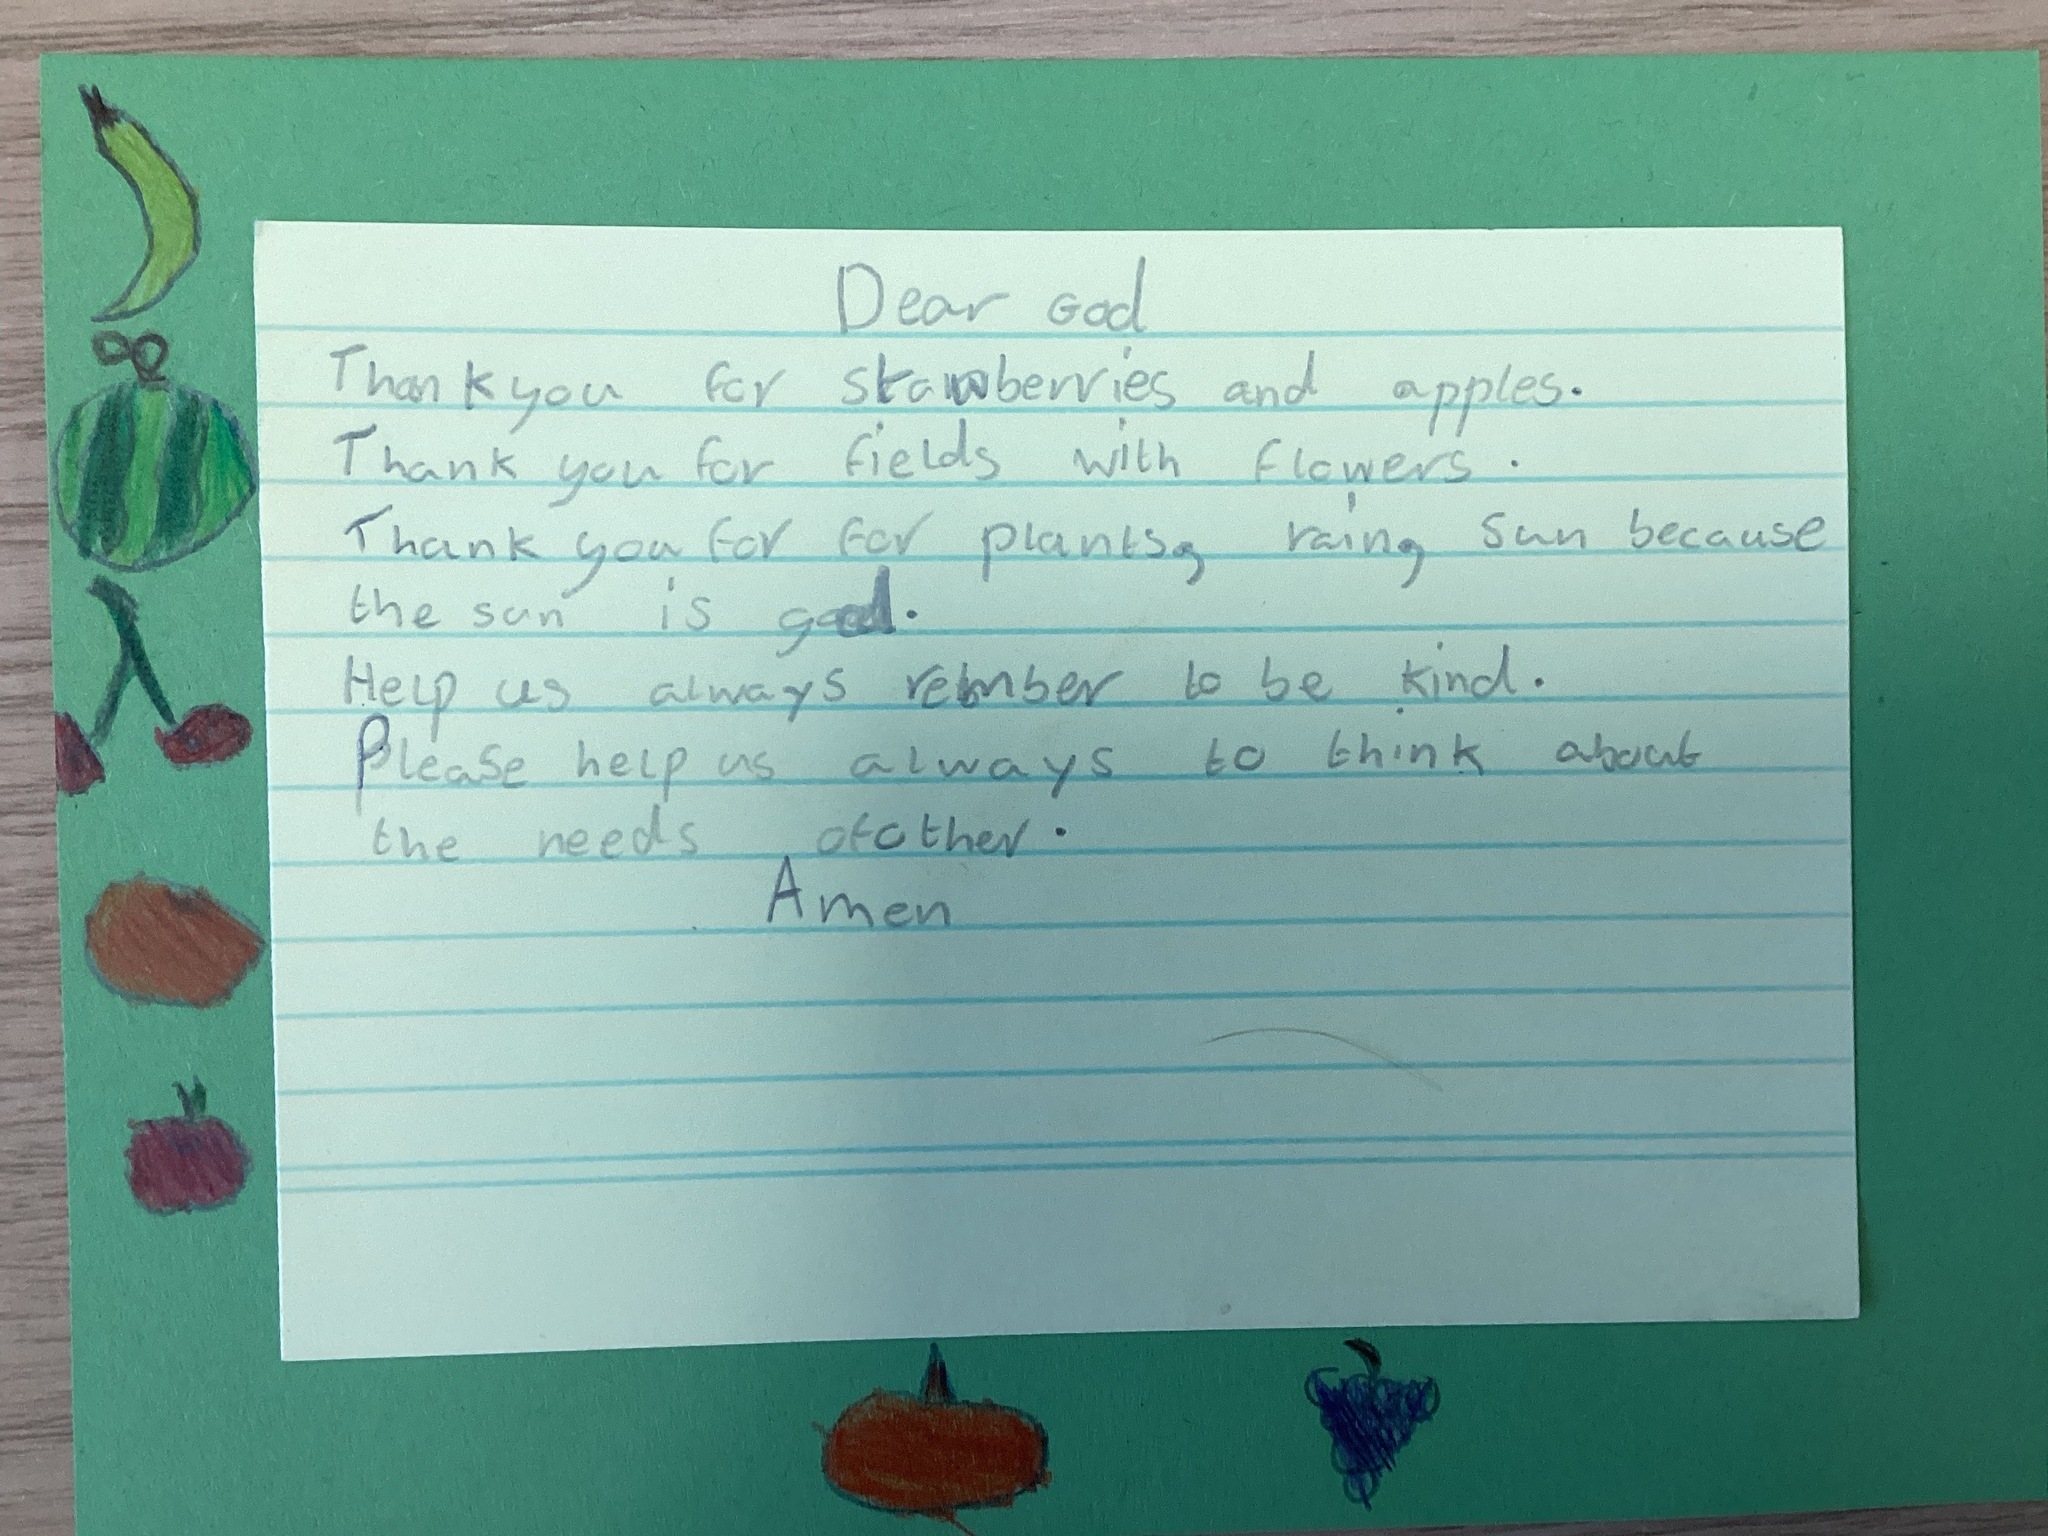 Dear God
Thank you for stawberries and apples.
Thank you for fields with flowers.
Thank you for for plants, rain, sun because
the sun is good.
Help us always rember to be kind.
Please help us always to think about
the needs of other.
Amen